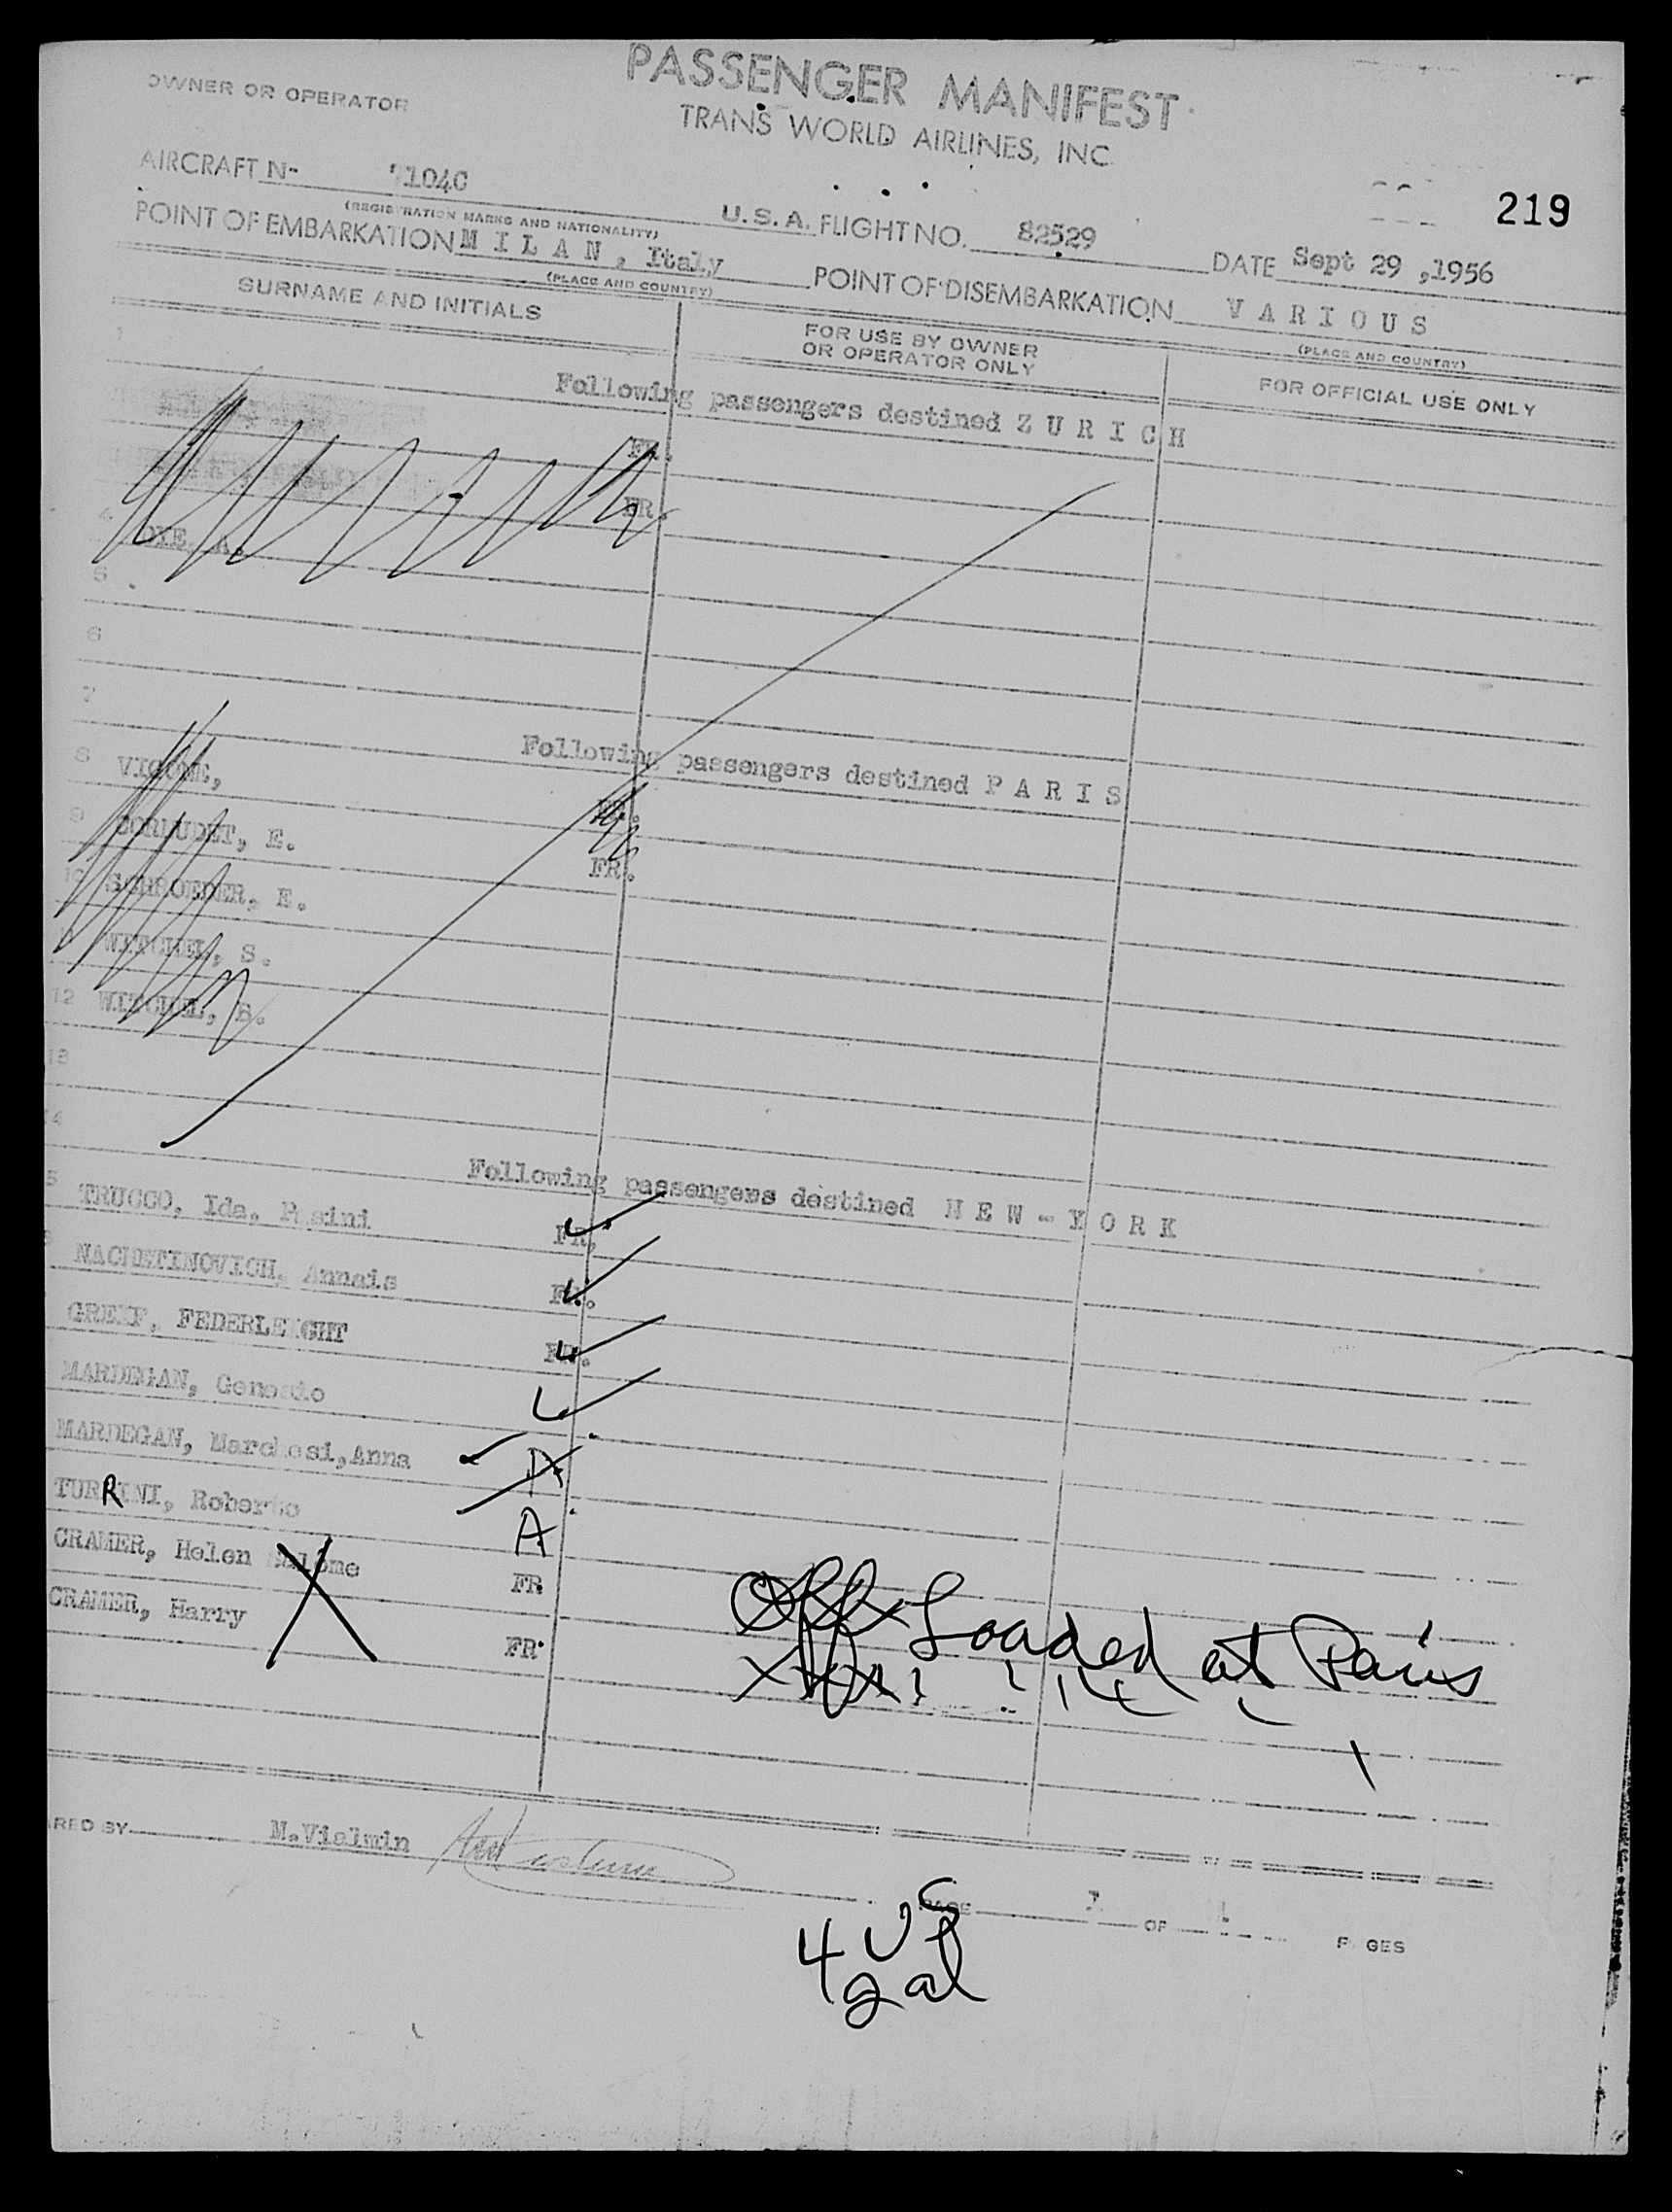 PASSENGER MANIFEST
OWNER OR OPERATOR
TRANS WORLD AIRLINES, INC.
AIRCRAFT N- 7104C
(REGISTRATION MARKS AND NATIONALITY)
U.S.A. FLIGHT NO. 82529
219
DATE Sept 29 ,1956
POINT OF EMBARKATION M I L A N , Italy
(PLACE AND COUNTRY)
POINT OF DISEMBARKATION V A R I O U S
(PLACE AND COUNTRY)
SURNAME AND INITIALS
FOR USE BY OWNER
OR OPERATOR ONLY
FOR OFFICIAL USE ONLY
1
Following passengers destined Z U R I C H
FR.
FR.
4 DYE, A.
5
6
7
Following passengers destined P A R I S
8 VIGONE,
9 E.
FR.
10 SCHROEDER, E.
11 WITCHEL, S.
12 WITCHEL, B.
13
14
Following passengers destined N E W - Y O R K
5 TRUCCO, Ida.
FR.
Annais
FR.
FEDERLEIGHT
FR.
MARDEGAN,
MARDEGAN, Marchesi,Anna
A
TURRINI, Roberto
A
CRAMER, Helen Salome
FR
CRAMER, Harry
FR
Off Loaded at Paris
RED BY M.Vielmin
PAGE 1 OF 1 PAGES
4 US
2 al